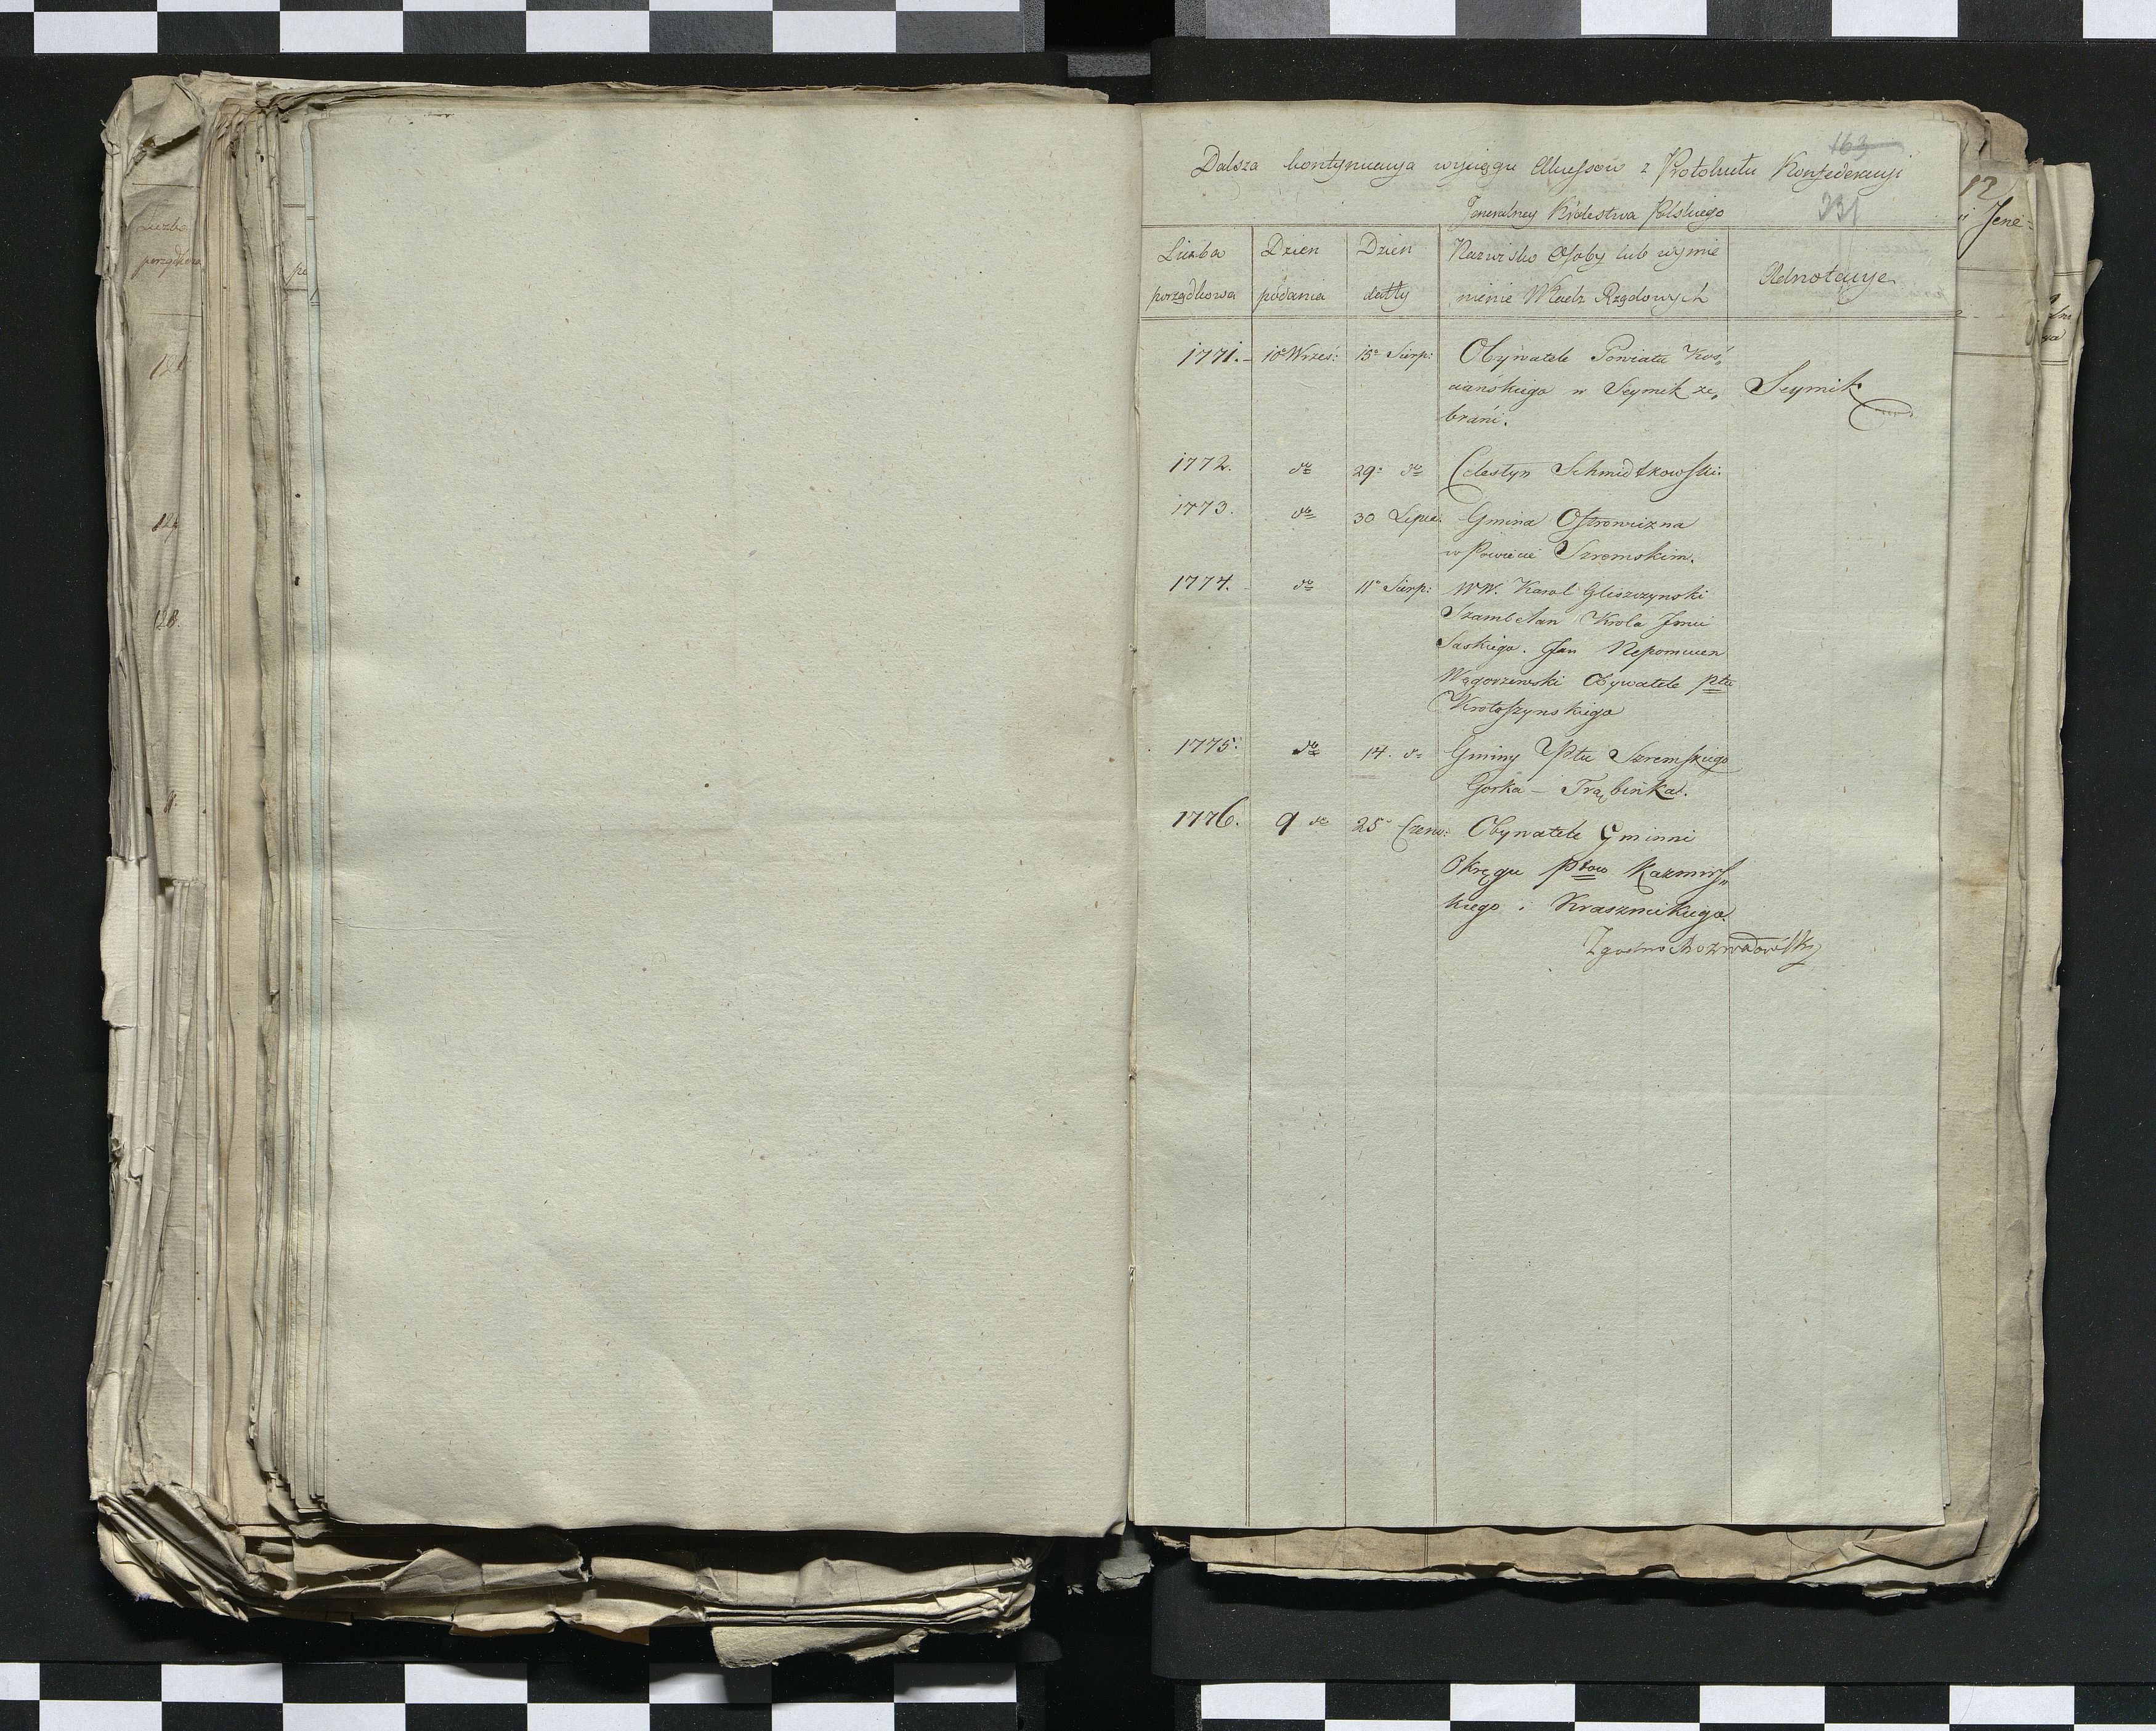 163
Dalsza kontynuacya wyciągu Akcessów z Protokułu Konfederacyi
Generalney Królestwa Polskiego
231
Liczba porządkowa
Dzien podania
Dzień datty
Nazwisko Osoby lub wymie
nienie Władz Rządowych
Adnotacye
1771. 10º Wrześ: 15º Sierp: Obywatele Powiatu Koś„
ciańskiego w Seymik ze„ Seymik
brani.
1772. dº 29º dº Celestyn Schmidtkowski.
1773. dº 30 Lipca. Gmina Ostrowiczna
w Powiecie Szremskim.
1774. dº 11º Sierp: WW. Karol Gliszczynski
Szambelan Krola Jmci
Saskiego. Jan Nepomucen
Węgorzewski Obywatele Ptu
Krotoszynskiego
1775. dº 14. dº Gminy Ptu Szremskiego
Gorka – Trąbinka.
1776. 9 dº 25º Czerw: Obywatele Gminni
Okręgu Ptow Kazmirs„
kiego i Krasznickiego.
Zgodno Rozwadowski
12
Jene-
Liczba
porządkowa
128.